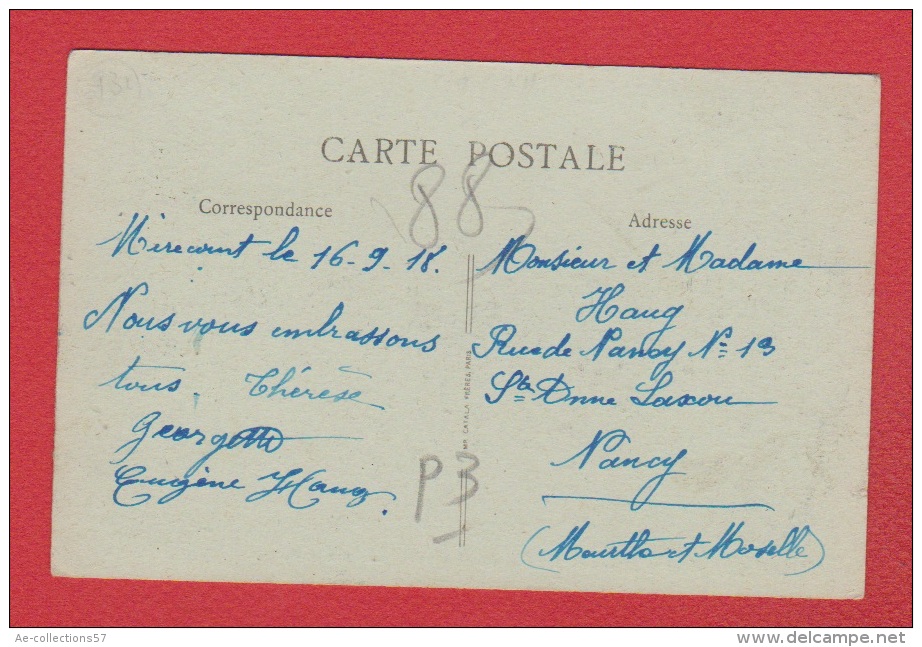 CARTE POSTALE
88
Correspondance
Mirecourt le 16-9-18.
Nous vous embrassons
tous. Thérèse
Georgette
Eugène Haug.
P3
Adresse
Monsieur et Madame
Haug
Rue de Nancy No 13
Ste Anne Laxou
Nancy
(Meurthe et Moselle)
CAYALA FRÈRES, PARIS
Ae-collections57
http://www.delcampe.net